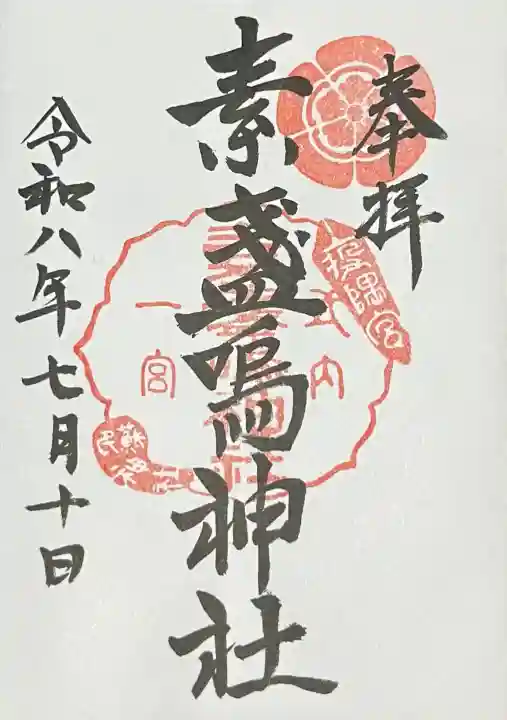 奉拝
素盞嗚神社
令和八年七月十日
疫隅宮
式内
一宮
蘇民